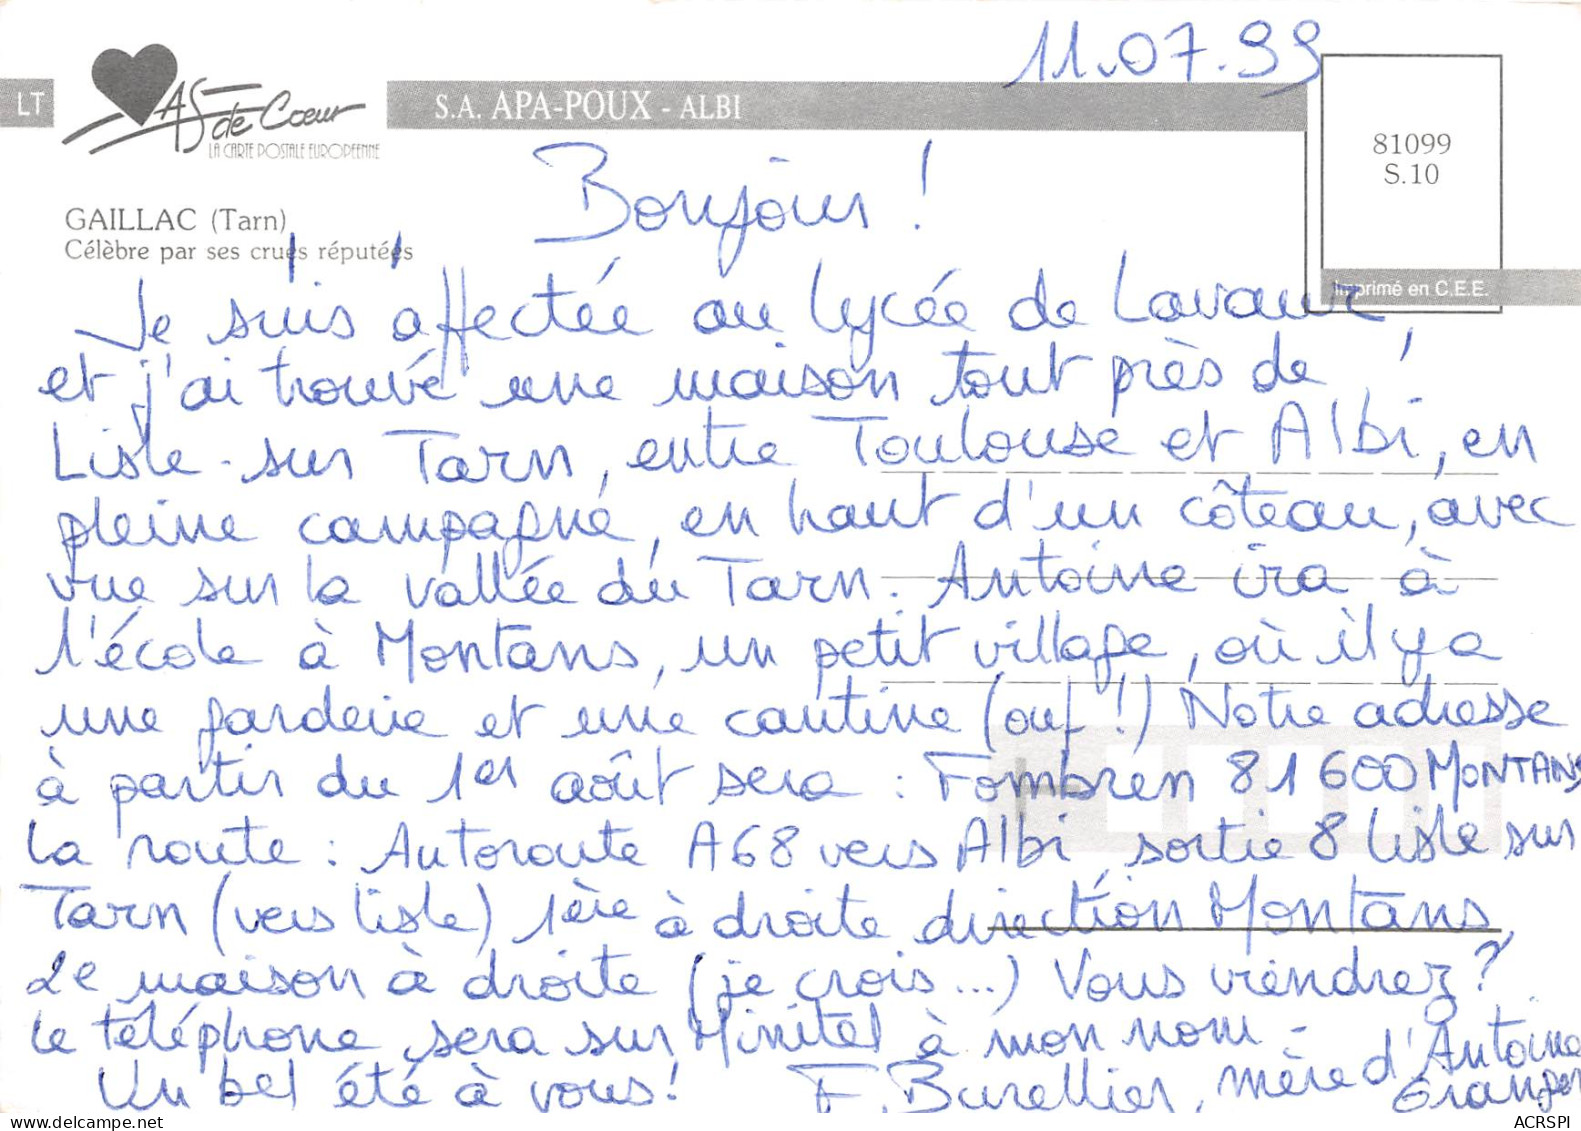 11.07.99
LT
As de Cœur
LA CARTE POSTALE EUROPEENNE
S.A. APA-POUX - ALBI
81099
S.10
GAILLAC (Tarn)
Célèbre par ses crues réputées
Imprimé en C.E.E.
Bonjour !
Je suis affectée au lycée de Lavaur,
et j'ai trouvé une maison tout près de
Lisle-sur Tarn, entre Toulouse et Albi, en
pleine campagne, en haut d'un côteau, avec
vue sur la vallée du Tarn. Antoine ira à
l'école à Montans, un petit village, où il y a
une garderie et une cantine (ouf !) Notre adresse
à partir du 1er août sera : Fombren 81600 MONTANS
La route : Autoroute A68 vers Albi, sortie 8 Lisle sur
Tarn (vers Lisle) 1ère à droite direction Montans,
2e maison à droite (je crois...) Vous viendrez ?
Le téléphone sera sur Minitel à mon nom -
Un bel été à vous ! F. Burellier, mère d'Antoine
Granger
ACRSPI